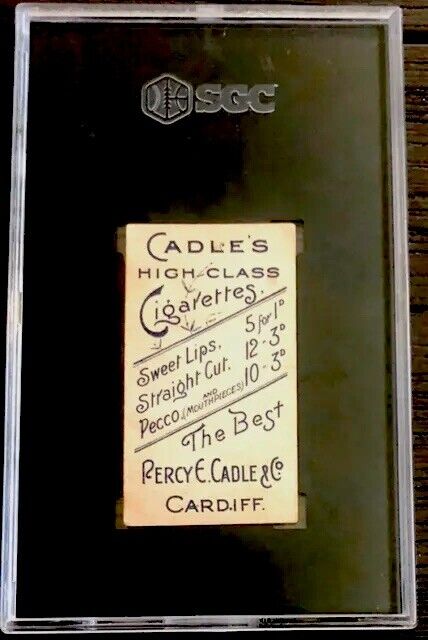 SGC
CADLE'S
HIGH-CLASS
Cigarettes.
Sweet Lips. 5 for 1D
Straight Cut. 12 - 3D
Pecco. (AND MOUTHPIECES) 10 - 3D
The Best
PERCY E. CADLE & Co
CARDIFF.